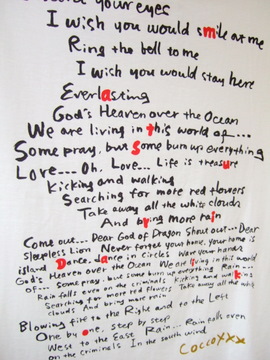 your eyes
I wish you would smile at me
Ring the bell to me
I wish you would stay here
Everlasting
God's Heaven over the Ocean
We are living in this world of...
Some pray, but some burn up everything
Love... Oh, Love... Life is treasure
Kicking and walking
Searching for more red flowers
Take away all the white clouds
And bring more rain
Come out... Dear God of Dragon Shout out... Dear
sleepless Lion Never forget your home, your home is
island Dance, dance in circles Wave your hands
God's Heaven over the Ocean We are living in this world
of... Some pray but some burn up everything Rain...
Rain falls even on the criminals Kicking and walking
Searching for more red flowers Take away all the white
clouds And bring more rain
Blowing fire to the Right and to the Left
One by one, step by step
West to the East Rain... Rain falls even
on the criminals In the south wind
Coccoxxx